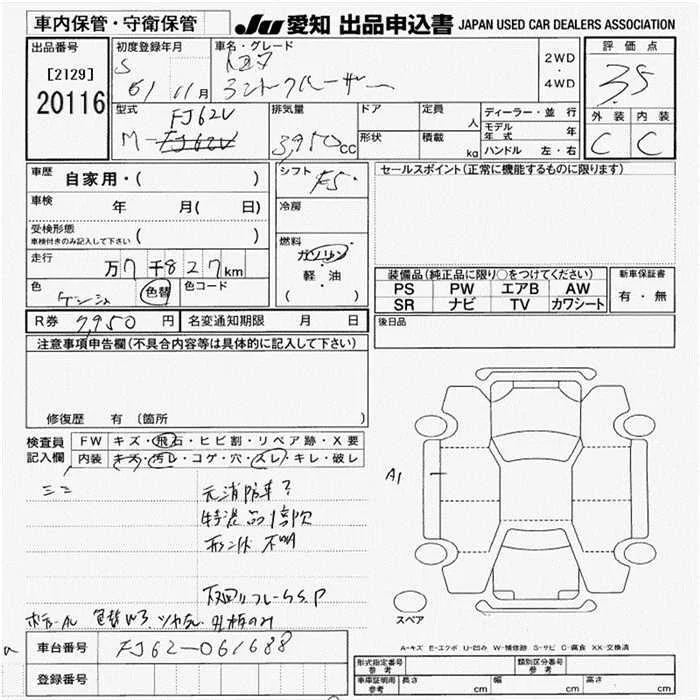 車内保管・守衛保管
JU 愛知 出品申込書 JAPAN USED CAR DEALERS ASSOCIATION
出品番号
[2129]
20116
初度登録年月
S 61 11月
車名・グレード
トヨタ
2WD
・
4WD
評価点
3.5
外装 内装
C C
型式
FJ62V
M-FJ62V
排気量
3,950cc
ドア
形状
定員
人
積載
kg
ディーラー・並行
モデル年式 年
ハンドル 左・右
車歴 自家用・( )
車検 年 月( 日)
受検形態
車検付きのみ記入して下さい ( )
走行 万7千827km
色 色替 色コード
R券 7,950円 名変通知期限 月 日
シフト F5
冷房
燃料
ガソリン
・
軽・油
( )
セールスポイント(正常に機能するものに限ります)
装備品(純正品に限り○をつけてください)
PS PW エアB AW
SR ナビ TV カワシート
新車保証書
有・無
後日品
注意事項申告欄(不具合内容等は具体的に記入して下さい)
修復歴 有 (箇所 )
検査員記入欄
FW キズ・飛石・ヒビ割・リペア跡・X要
内装 キズ・汚レ・コゲ・穴・スレ・キレ・破レ
元消防車?
形状 不明
下回リフレームS.P
A1
スペア
A-キズ E-エクボ U-凹み W-補修跡 S-サビ C-腐食 XX-交換済
車台番号 FJ62-061688
登録番号
形式指定番号 参考
類別区分番号 参考
車庫証明用 参考 長さ cm 幅 cm 高さ cm